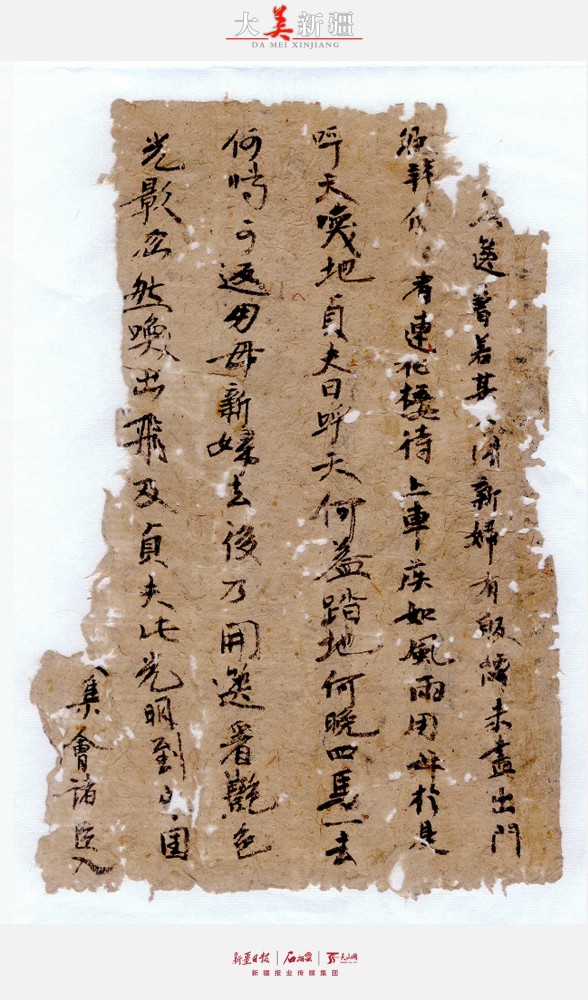 大美新疆
DA MEI XINJIANG
若其新婦有未盡出門
者連待上車疾如風雨用母於是
呼天喚地貞夫曰呼天何益踏地何晚四馬一去
何時可返用母新婦去後乃開看艷色
光影忽然喚出飛及貞夫此光明到國
集會諸臣入
新疆日报
石榴云
天山网
新疆报业传媒集团